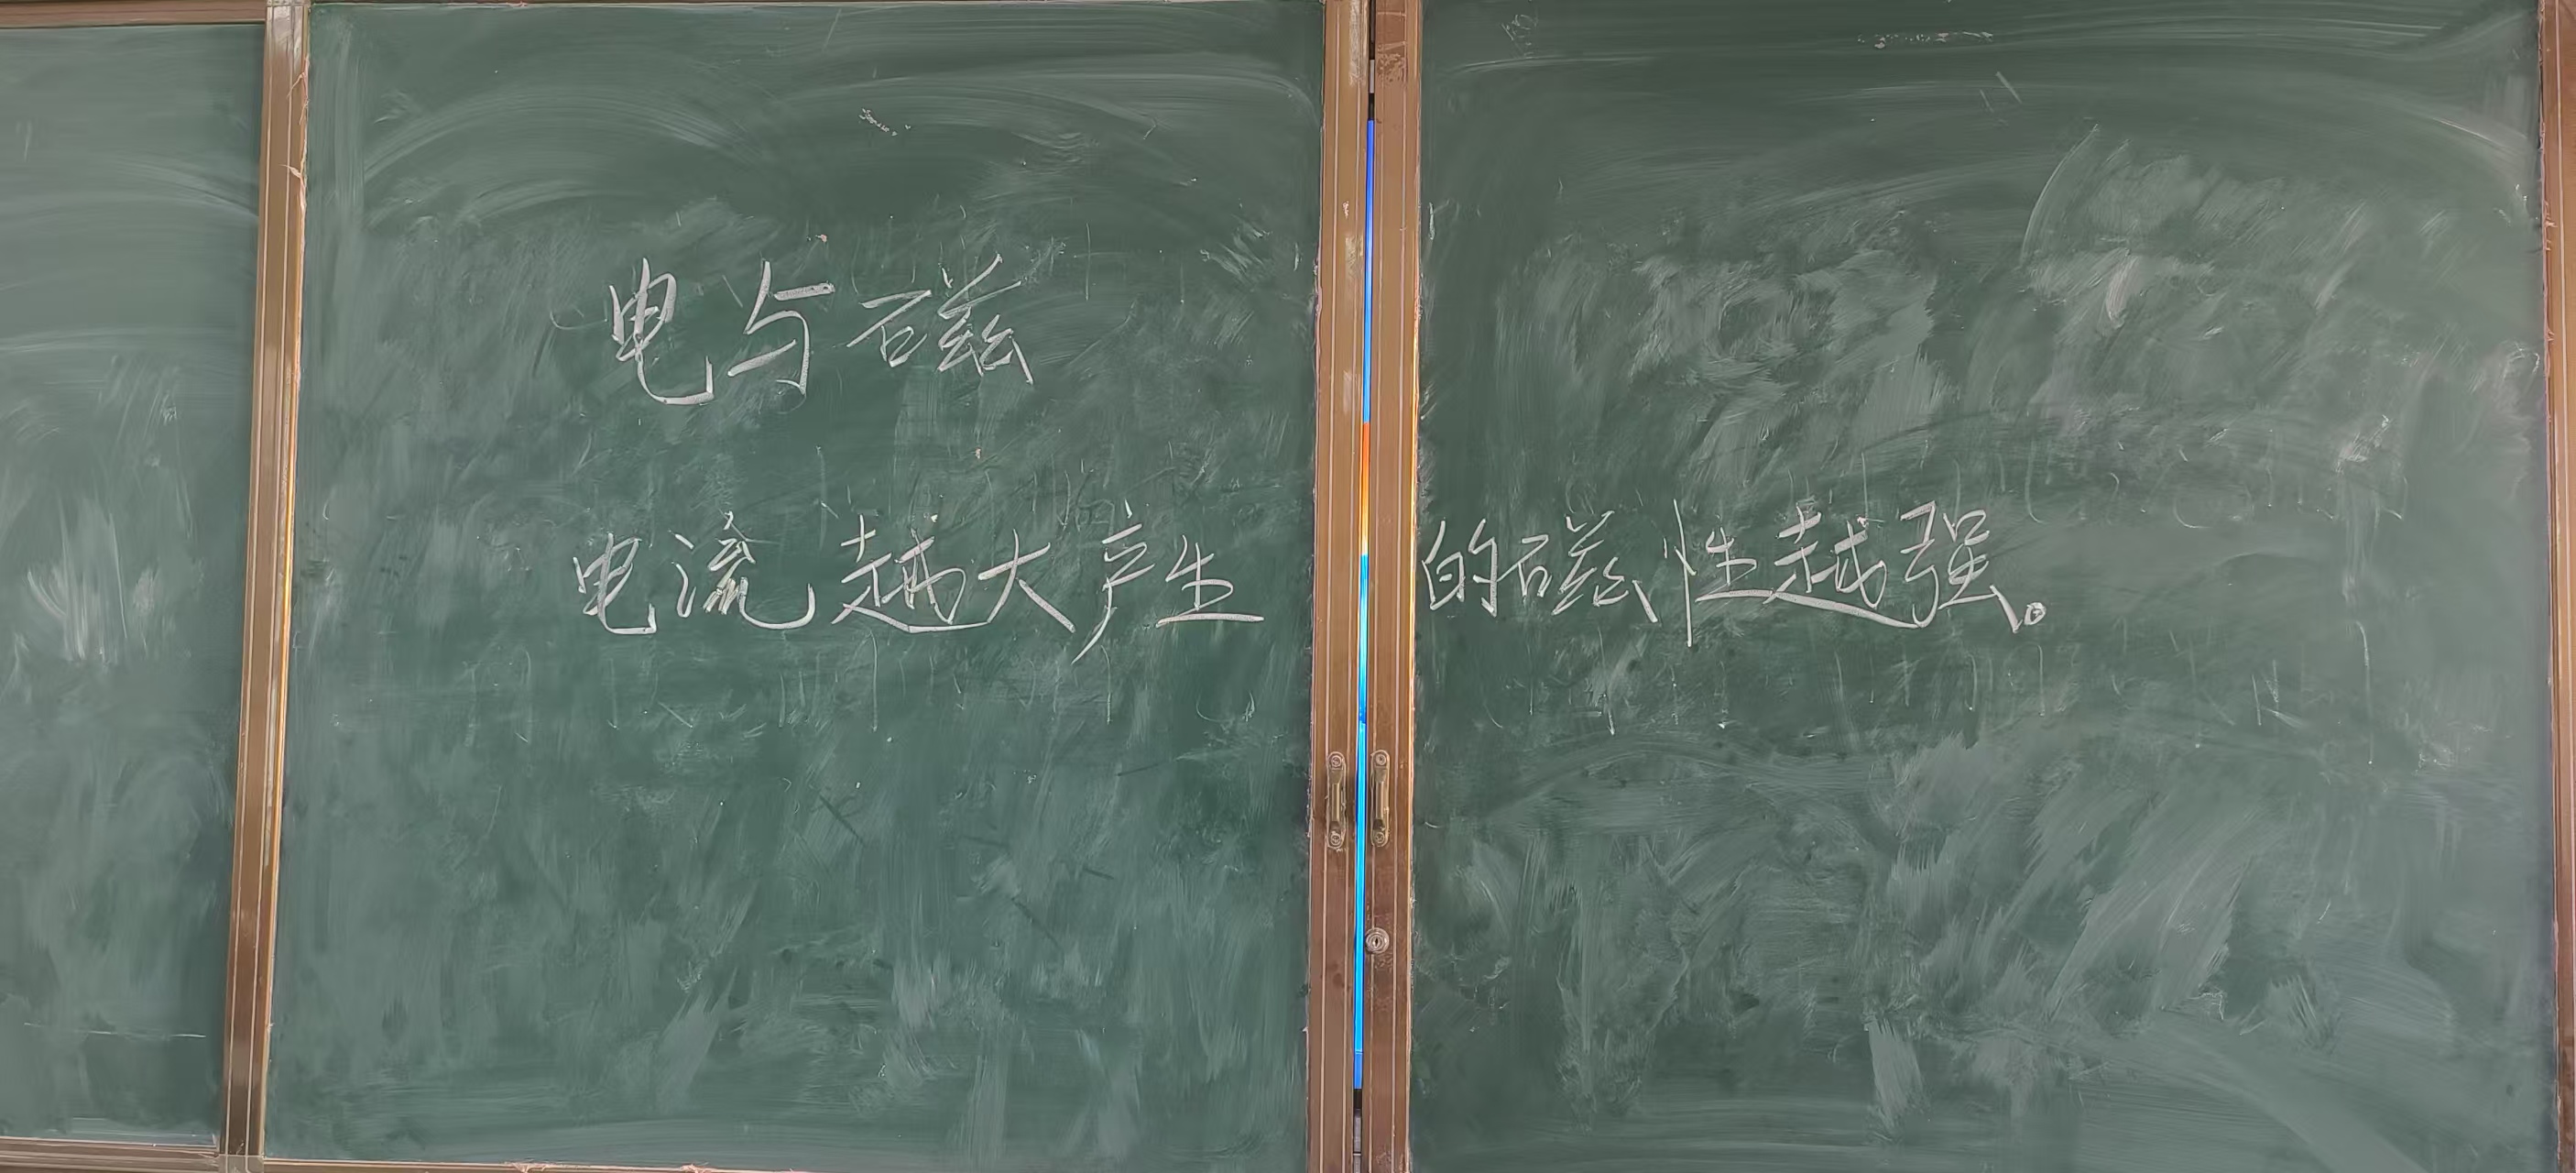 电与磁
电流越大产生的磁性越强。